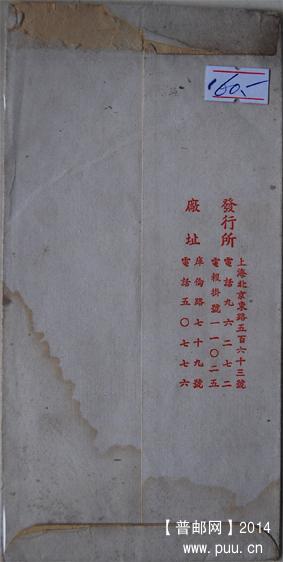 160.-
發行所
上海北京東路五百六十三號
電話九六二七二
電報掛號一一〇二五
廠址
庫倫路七十九號
電話五〇七七六
【普邮网】2014
www.puu.cn